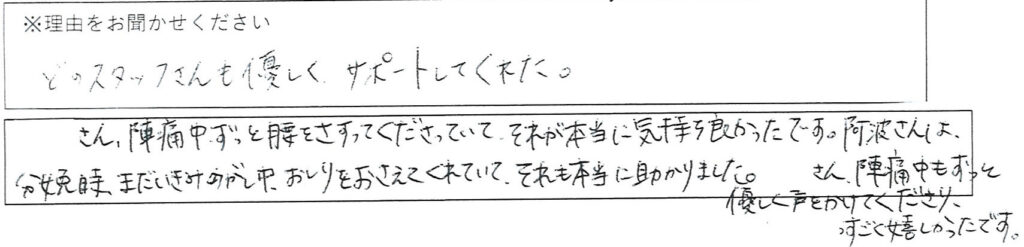 ※理由をお聞かせください
どのスタッフさんも優しく、サポートしてくれた。
さん、陣痛中ずっと腰をさすってくださっていて、それが本当に気持ち良かったです。阿波さんは、
分娩時、まだいきみのがし中、おしりをおさえてくれていて、それも本当に助かりました。 さん、陣痛中もずっと
優しく声をかけてくださり、
すごく嬉しかったです。